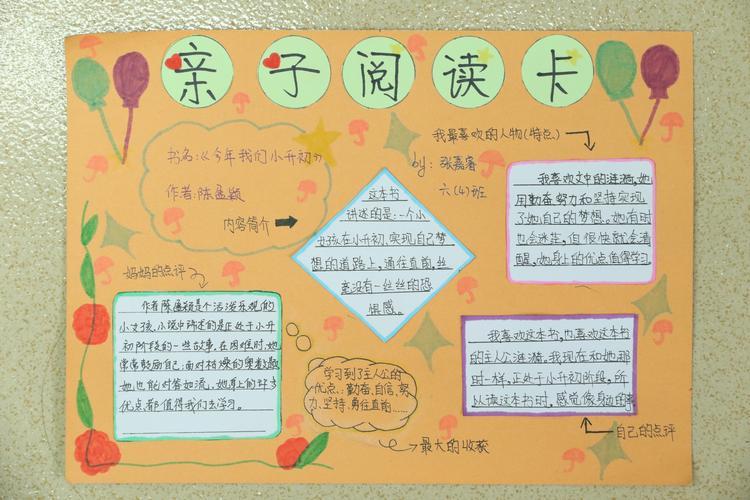 亲子阅读卡
书名:《今年我们小升初》
作者:陈
by:张嘉
六(4)班
内容简介
这本书
讲述的是:一个小
女孩在小升初、实现自己梦
想的道路上,通往直前,丝
毫没有一丝丝的恐
惧感。
我最喜欢的人物(特点)
我喜欢文中的涟漪,她
用勤奋、努力和坚持实现
了她自己的梦想。她有时
也会迷茫,但很快就会清
醒,她身上的优点值得学习。
妈妈的点评
作者陈 是个活泼乐观的
小女孩,小说中讲述的是正处于小升
初阶段的一些故事,在困难时,她
常常鼓励自己;面对枯燥的奥数题
她也能对答如流。她身上的许多
优点都值得我们去学习。
学习到了主人公的
优点:勤奋、自信、努
力、坚持、勇往直前……
最大的收获
我喜欢这本书,也喜欢这本书
的主人公涟漪,我现在和她那
时一样,正处于小升初阶段。所
以读这本书时,感觉像身边的事
自己的点评